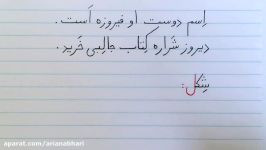 اِسم دوست او فیروزه اَست .
دیروز شَراره کِتاب جالِبی خَرید .
شِکل:
aparat.com/arianabhari